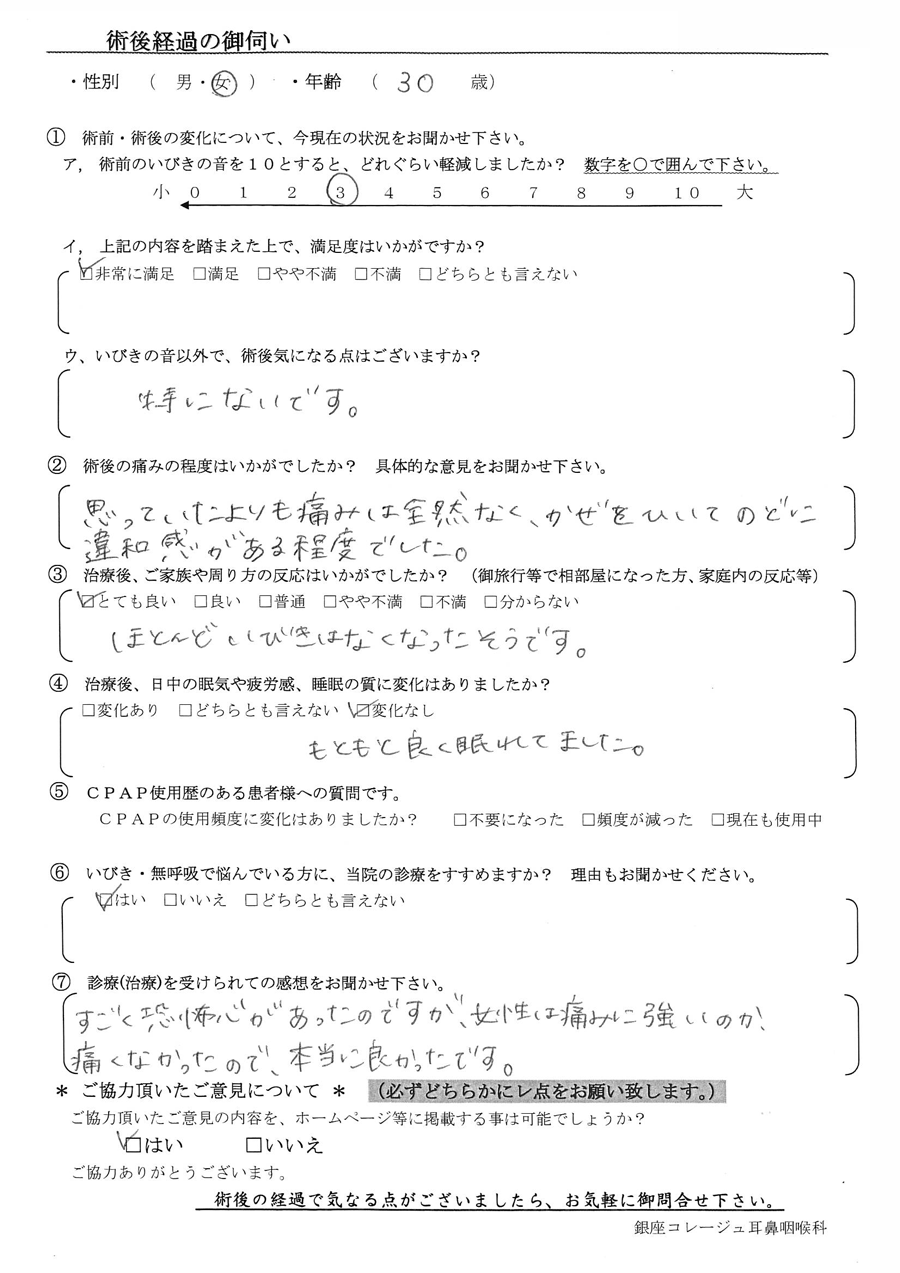 術後経過の御伺い
・性別　（　男・女　）　・年齢　（　30　歳）
①　術前・術後の変化について、今現在の状況をお聞かせ下さい。
ア，術前のいびきの音を１０とすると、どれぐらい軽減しましたか？　数字を○で囲んで下さい。
小　0　1　2　3　4　5　6　7　8　9　10　大
イ，上記の内容を踏まえた上で、満足度はいかがですか？
☑非常に満足　□満足　□やや不満　□不満　□どちらとも言えない
ウ、いびきの音以外で、術後気になる点はございますか？
特にないです。
②　術後の痛みの程度はいかがでしたか？　具体的な意見をお聞かせ下さい。
思っていたよりも痛みは全然なく、かぜをひいてのどに
違和感がある程度でした。
③　治療後、ご家族や周り方の反応はいかがでしたか？　（御旅行等で相部屋になった方、家庭内の反応等）
☑とても良い　□良い　□普通　□やや不満　□不満　□分からない
ほとんどいびきはなくなったそうです。
④　治療後、日中の眠気や疲労感、睡眠の質に変化はありましたか？
□変化あり　□どちらとも言えない　☑変化なし
もともと良く眠れてました。
⑤　ＣＰＡＰ使用歴のある患者様への質問です。
ＣＰＡＰの使用頻度に変化はありましたか？　□不要になった　□頻度が減った　□現在も使用中
⑥　いびき・無呼吸で悩んでいる方に、当院の診療をすすめますか？　理由もお聞かせください。
☑はい　□いいえ　□どちらとも言えない
⑦　診療(治療)を受けられての感想をお聞かせ下さい。
すごく恐怖心があったのですが、女性は痛みに強いのか、
痛くなかったので、本当に良かったです。
＊ ご協力頂いたご意見について ＊　（必ずどちらかにレ点をお願い致します。）
ご協力頂いたご意見の内容を、ホームページ等に掲載する事は可能でしょうか？
☑はい　□いいえ
ご協力ありがとうございます。
術後の経過で気なる点がございましたら、お気軽に御問合せ下さい。
銀座コレージュ耳鼻咽喉科